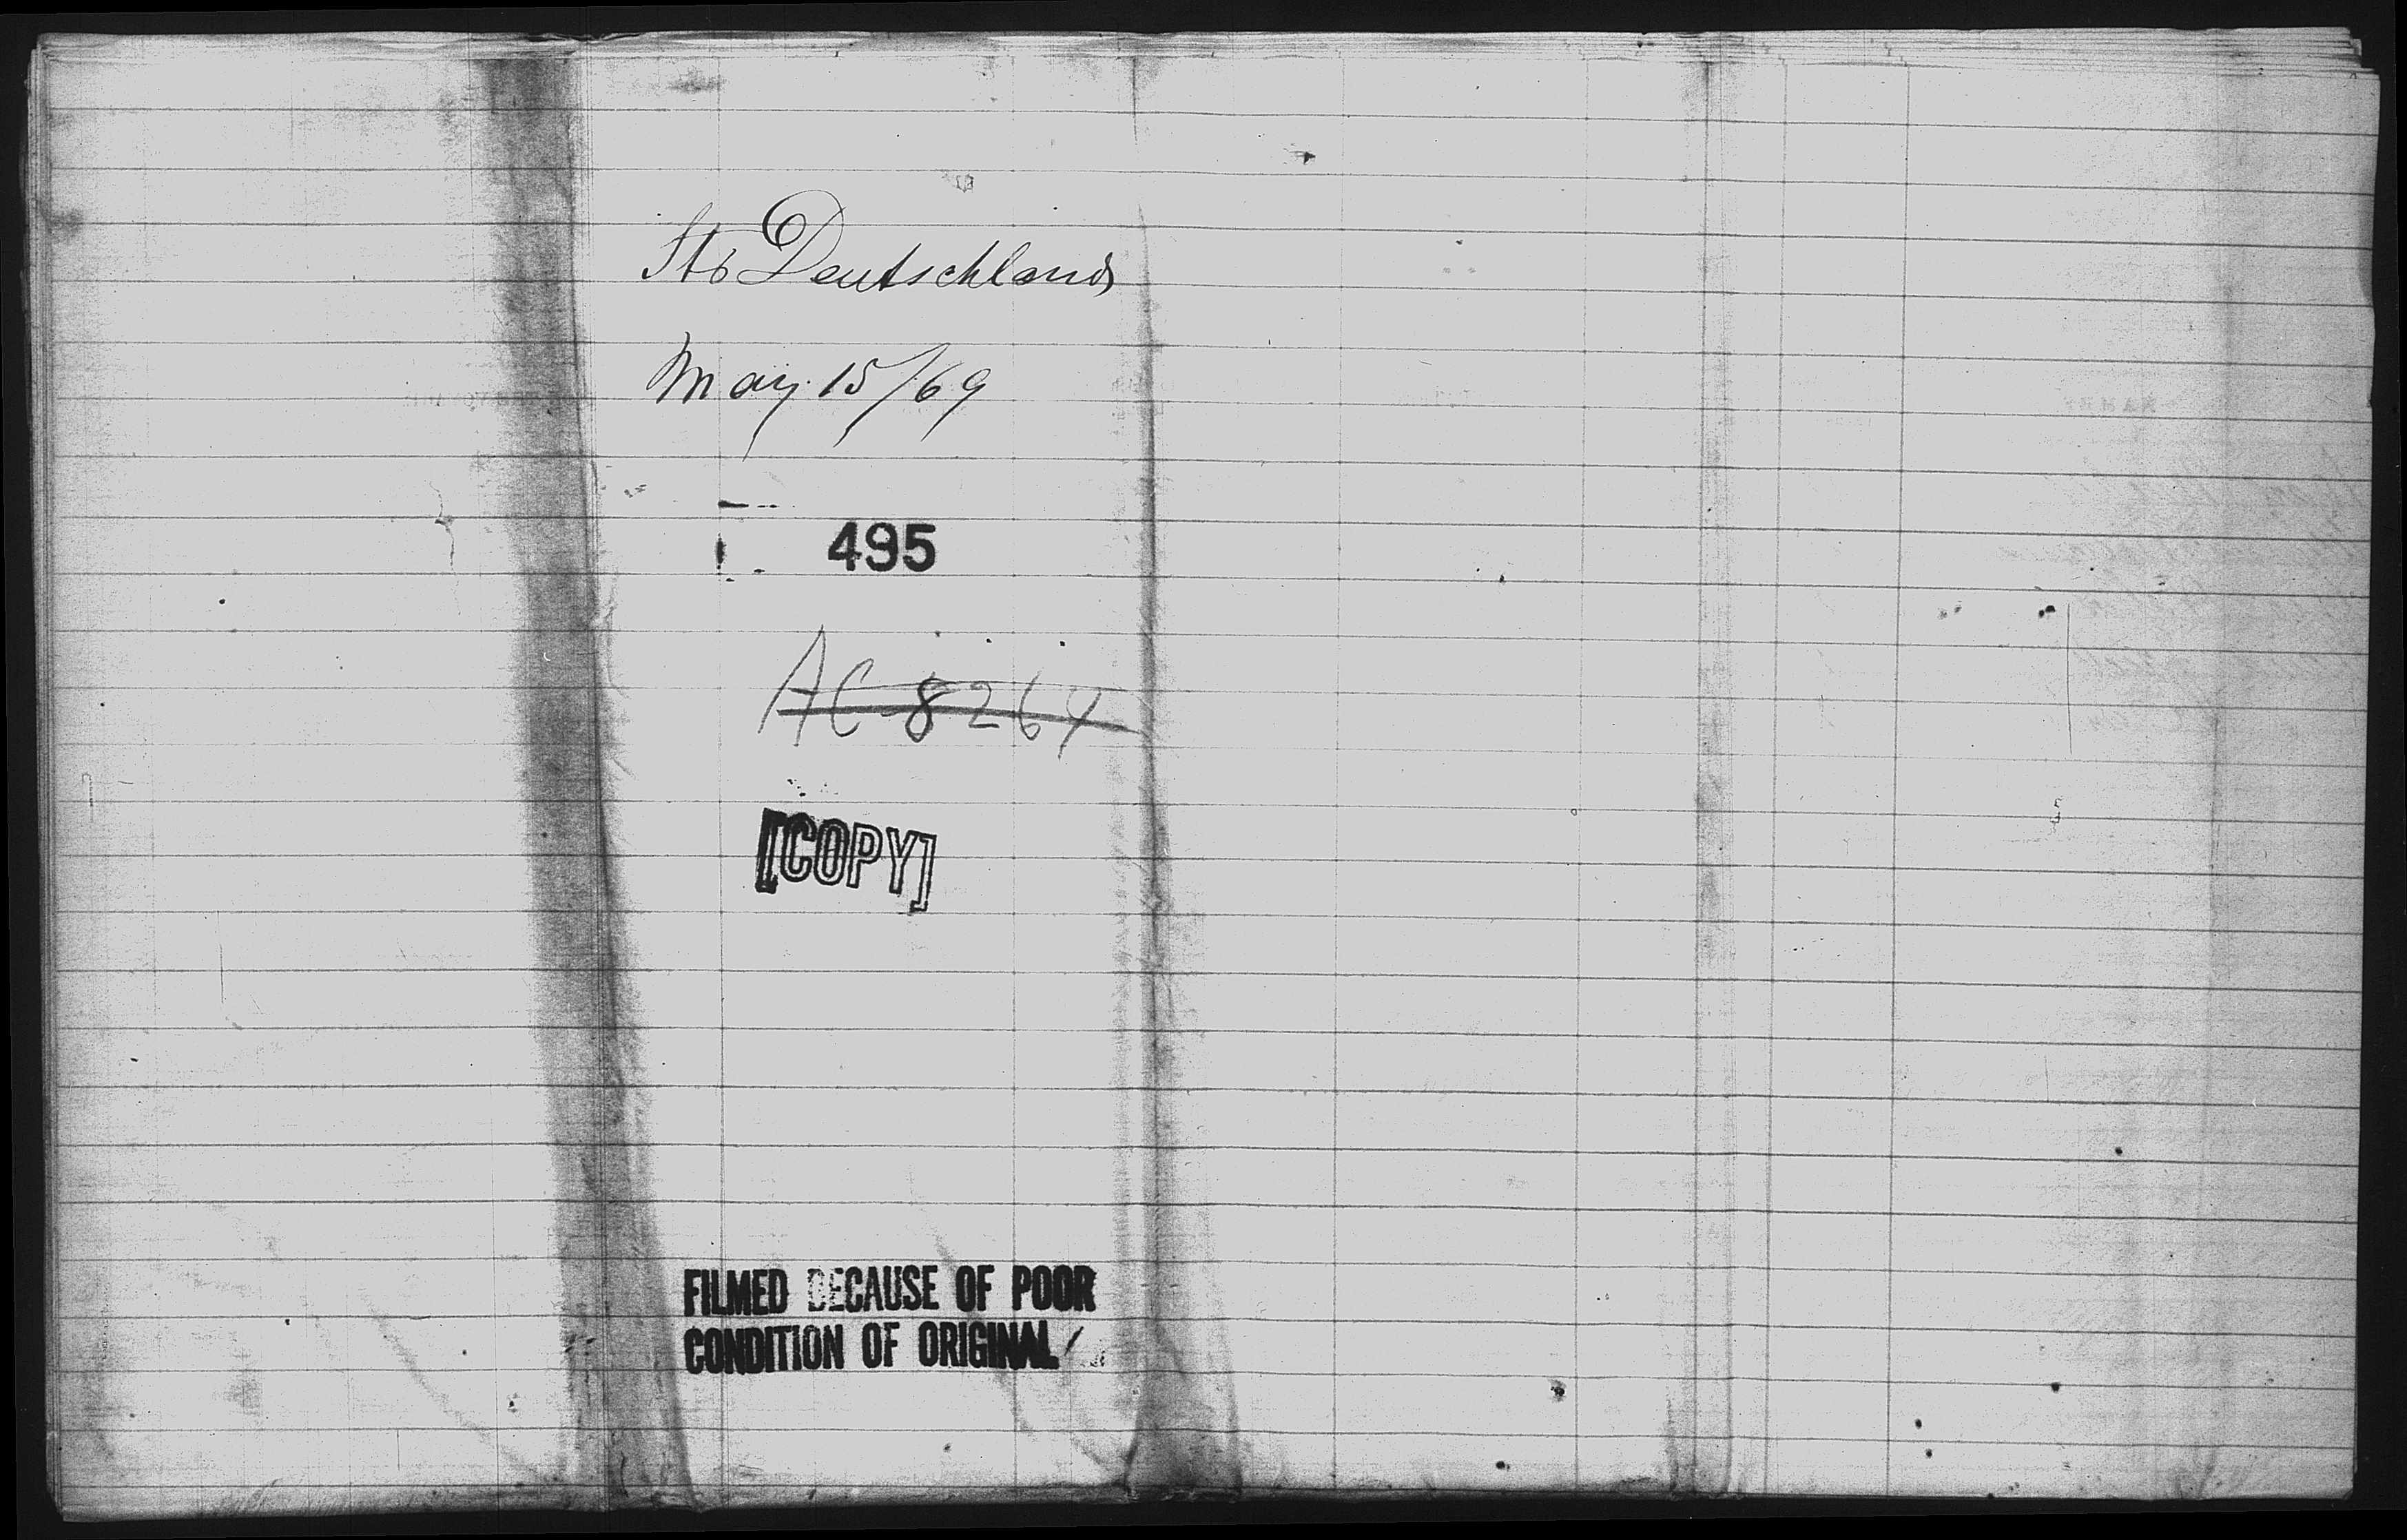 Sts Deutschland
May 15/69
495
AC-8264
[COPY]
FILMED BECAUSE OF POOR
CONDITION OF ORIGINAL